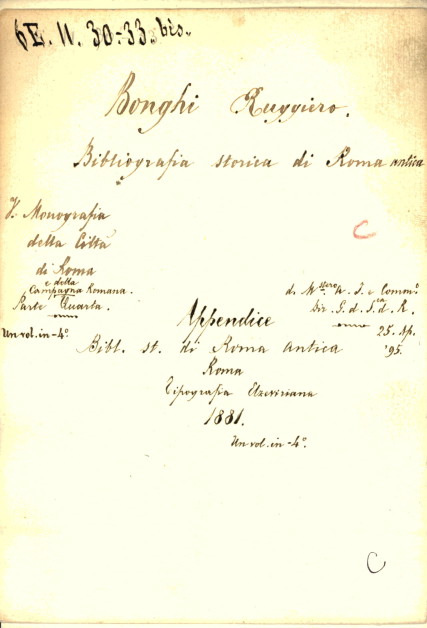 6E. II. 30-33. bis.
Bonghi Ruggiero.
Bibliografia storica di Roma antica
C
V. Monografia
della Città
di Roma
e della
Campagna Romana.
Parte Quarta.
Un vol. in-4°.
d. A. I. e Comm.
Dir. G. d. d. R.
25. Ap.
'95.
Appendice
Bibl. st. di Roma antica
Roma
Tipografia Elzeviriana
1881.
Un vol. in-4°.
C